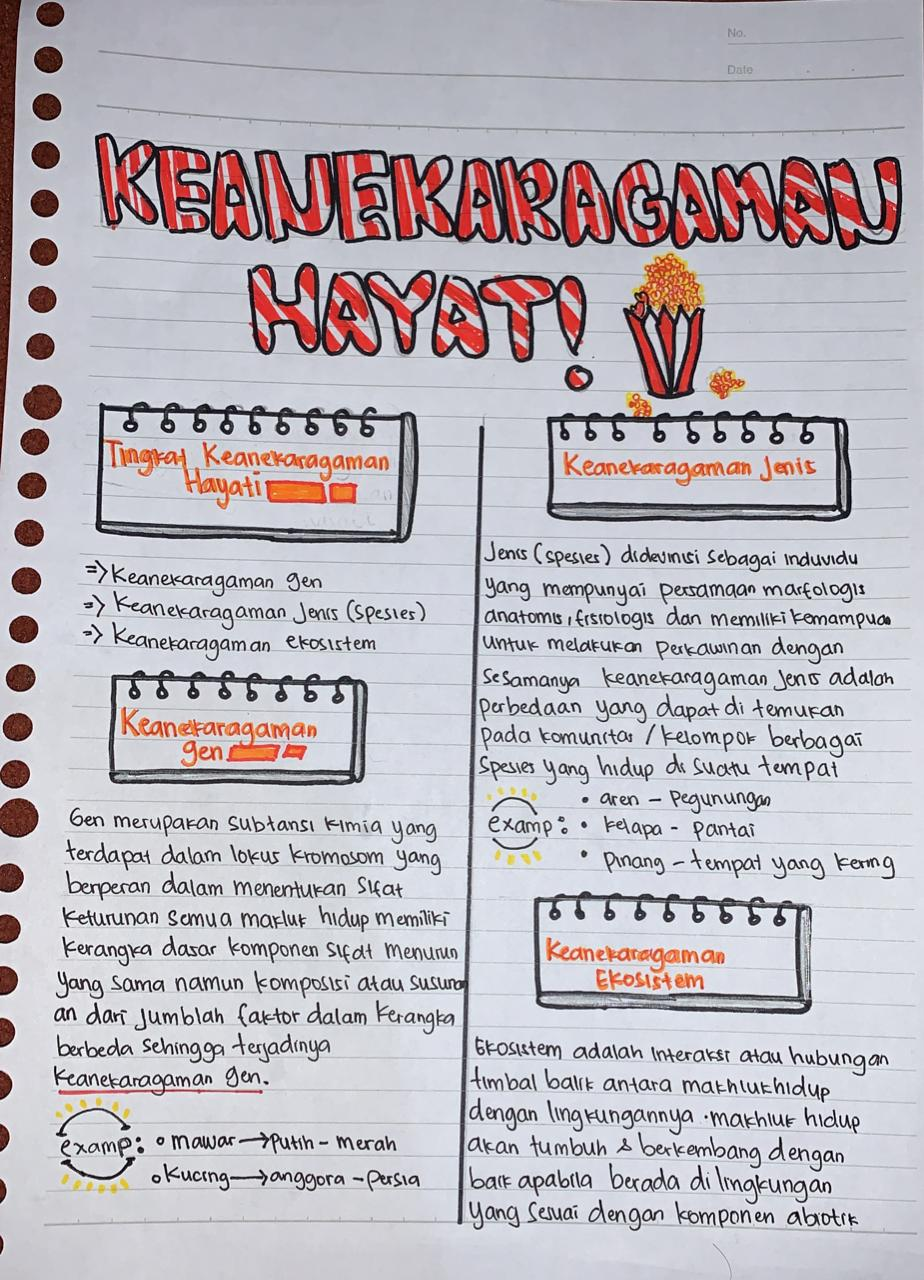 No.
Date
KEANEKARAGAMAN
HAYAT!
Tingkat Keanekaragaman
Hayati
=> Keanekaragaman gen
=> Keanekaragaman Jenis (Spesies)
=> Keanekaragaman ekosistem
Keanekaragaman
gen
Gen merupakan subtansi kimia yang
terdapat dalam lokus kromosom yang
berperan dalam menentukan sifat
keturunan semua makluk hidup memiliki
kerangka dasar komponen sifat menurun
yang sama namun komposisi atau susun
an dari Jumblah faktor dalam kerangka
berbeda sehingga terjadinya
keanekaragaman gen.
examp: • mawar → putih - merah
• Kucing → anggora - persia
Keanekaragaman Jenis
Jenis (spesies) didevinisi sebagai induvidu
yang mempunyai persamaan marfologis
anatomis, fisiologis dan memiliki kemampuan
untuk melakukan perkawinan dengan
sesamanya keanekaragaman Jenis adalah
perbedaan yang dapat di temukan
pada komunitas / kelompok berbagai
spesies yang hidup di suatu tempat
• aren - Pegunungan
examp: • kelapa - pantai
• pinang - tempat yang kering
Keanekaragaman
Ekosistem
Ekosistem adalah interaksi atau hubungan
timbal balik antara makhluk hidup
dengan lingkungannya . makhluk hidup
akan tumbuh & berkembang dengan
baik apabila berada di lingkungan
yang sesuai dengan komponen abiotik